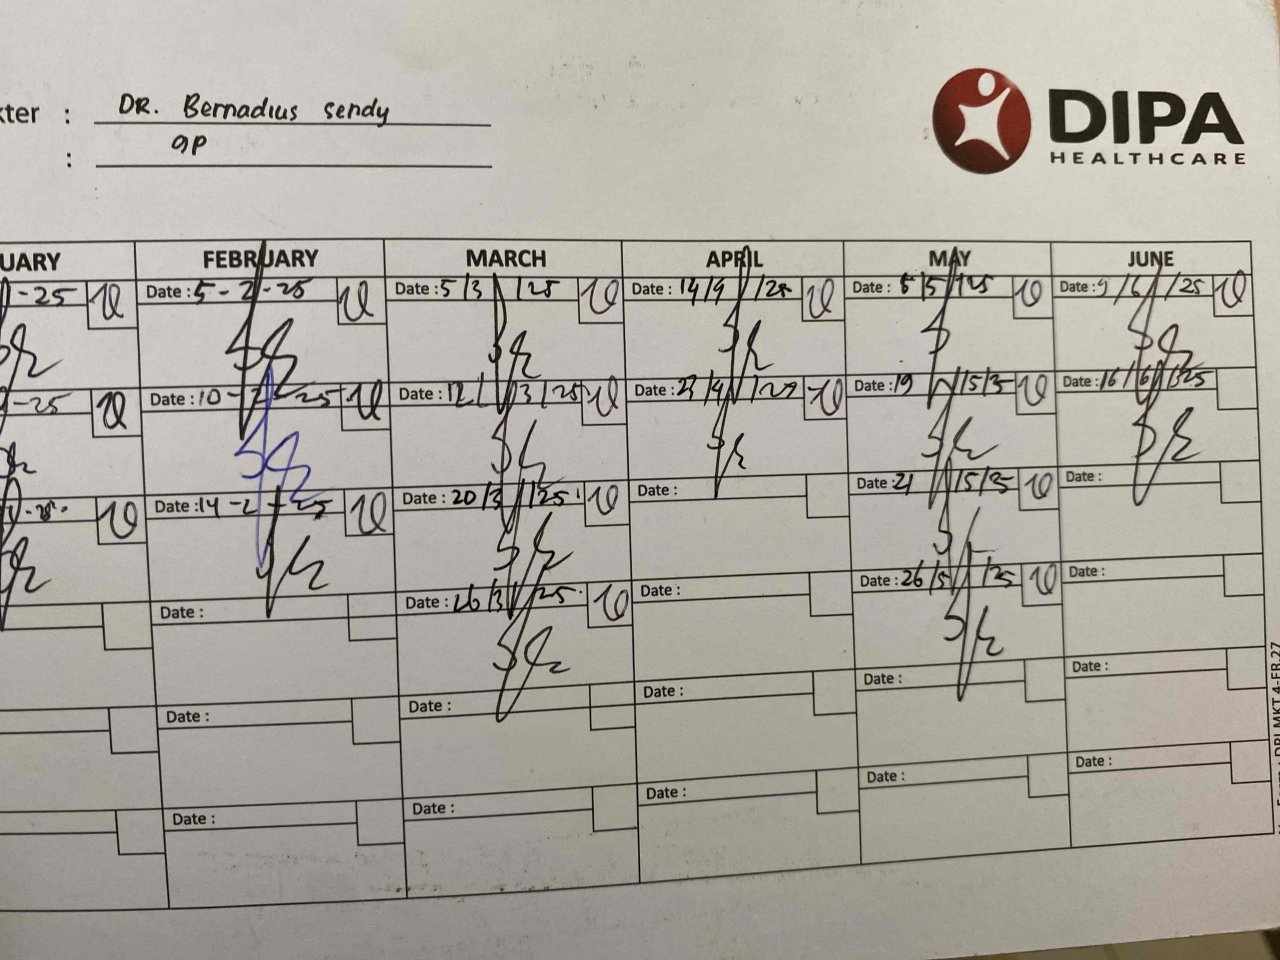 kter : DR. Bernadius sendy
: GP
DIPA
HEALTHCARE
UARY FEBRUARY MARCH APRIL MAY JUNE
-25 Date : 5 - 2 - 25 Date : 5/3/25 Date : 14/4/25 Date : 5/5/25 Date : 9/6/25
-25 Date : 10 - 2 - 25 Date : 12/3/25 Date : 23/4/25 Date : 19/5/25 Date : 16/6/25
Date : 14 - 2 - 25 Date : 20/3/25 Date : Date : 21/5/25 Date :
Date : Date : 26/3/25 Date : Date : 26/5/25 Date :
Date : Date : Date : Date : Date :
Date : Date : Date : Date : Date :